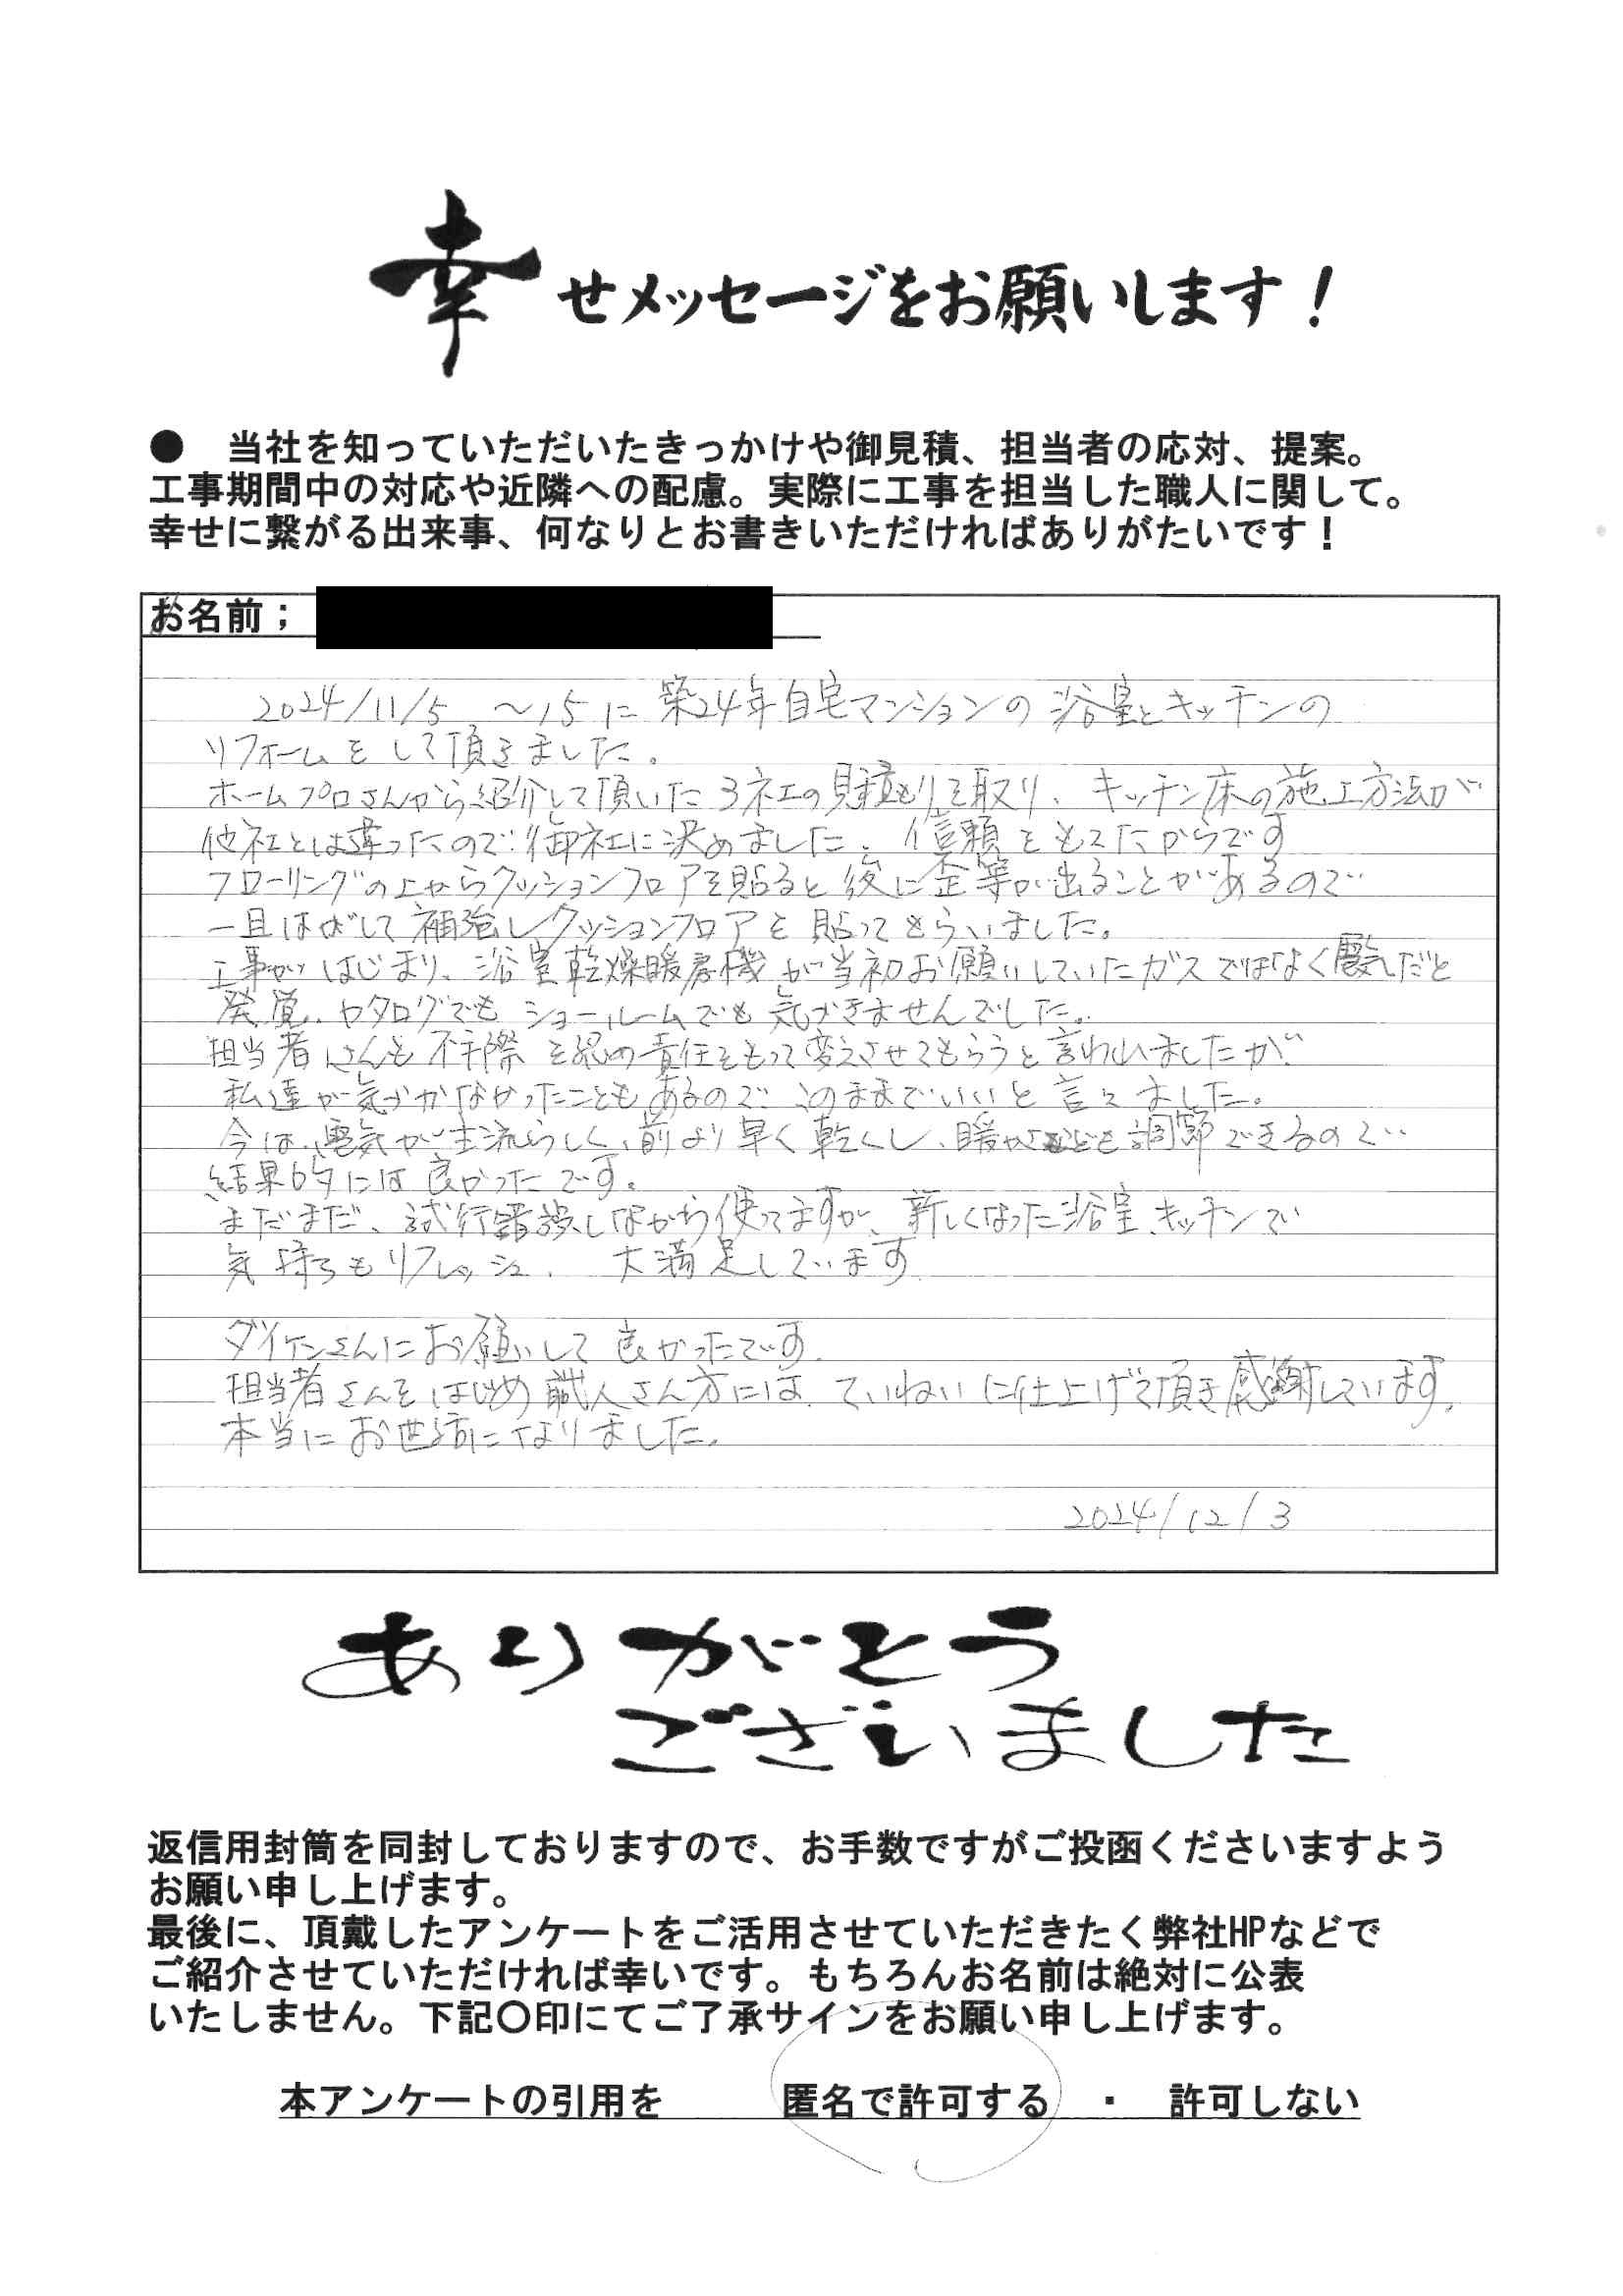 幸せメッセージをお願いします！
●　当社を知っていただいたきっかけや御見積、担当者の応対、提案。
工事期間中の対応や近隣への配慮。実際に工事を担当した職人に関して。
幸せに繋がる出来事、何なりとお書きいただければありがたいです！
お名前；
2024/11/5 〜15に 築24年自宅マンションの 浴室とキッチンの
リフォームを して頂きました。
ホームプロさんから紹介して頂いた3社の見積もりを取り、キッチン床の施工方法が
他社とは違ったので御社に決めました。信頼をもてたからです
フローリングの上からクッションフロアを貼ると後に歪等が出ることがあるので
一旦はがして補強しクッションフロアを貼ってもらいました。
工事がはじまり、浴室乾燥暖房機が当初お願いしていたガスではなく電気だと
発覚、カタログでもショールームでも気づきませんでした。
担当者さんも不手際を認め責任をもって変えさせてもらうと言われいましたが、
私達が気づかなかったこともあるので、このままでいいと言いました。
今は、電気が主流らしく、前より早く乾くし、暖かさなども調節できるので
結果的には良かったです。
まだまだ、試行錯誤しながら使ってますが、新しくなった浴室、キッチンで
気持ちもリフレッシュ、 大満足しています
ダイケンさんにお願いして良かったです。
担当者さんをはじめ職人さん方には、ていねいに仕上げて頂き感謝しています。
本当にお世話になりました。
2024/12/3
ありがとう
ございました
返信用封筒を同封しておりますので、お手数ですがご投函くださいますよう
お願い申し上げます。
最後に、頂戴したアンケートをご活用させていただきたく弊社HPなどで
ご紹介させていただければ幸いです。もちろんお名前は絶対に公表
いたしません。下記〇印にてご了承サインをお願い申し上げます。
本アンケートの引用を　　　匿名で許可する　・　許可しない